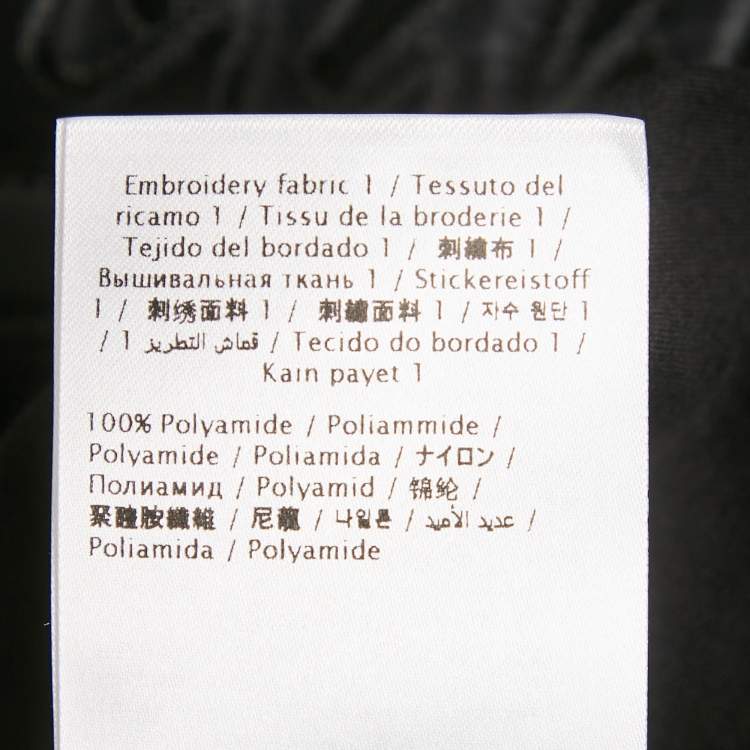 Embroidery fabric 1 / Tessuto del
ricamo 1 / Tissu de la broderie 1 /
Tejido del bordado 1 / 刺繍布 1 /
Вышивальная ткань 1 / Stickereistoff
1 / 刺绣面料 1 / 刺繡面料 1 / 자수 원단 1
/ قماش التطريز 1 / Tecido do bordado 1 /
Kain payet 1
100% Polyamide / Poliammide /
Polyamide / Poliamida / ナイロン /
Полиамид / Polyamid / 锦纶 /
聚醯胺纖維 / 尼龍 / 나일론 / عديد الأميد /
Poliamida / Polyamide